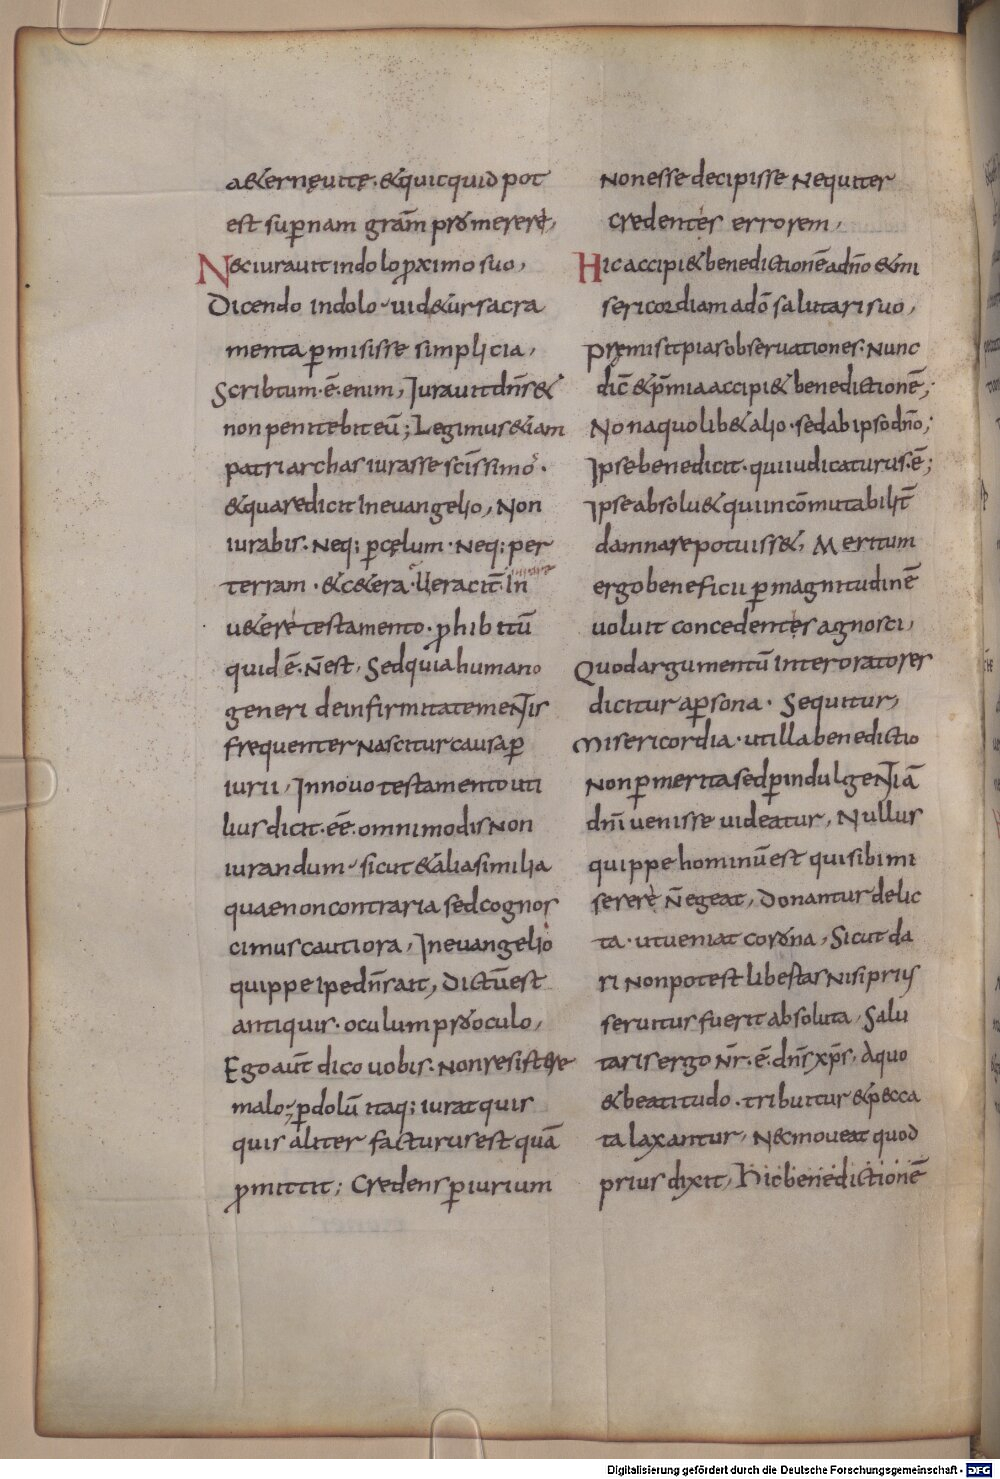 a&ernę uitę · & quicquid pot
est sup̄nam gr̄am promereri,
Nec iurauit in dolo proximo suo,
Dicendo in dolo uid&ur sacra
menta p̄misisse simplicia,
Scribtum · ē · enim, Iurauit dn̄s &
non penitebit eū; Legimus & iam
patriarchas iurasse sc̄issimos ·
& quare dicit in euangelio, Non
iurabis · Neq; p̄ cęlum · Neq; per
terram · & c&era · Ueracit̄ · In
u&ere testamento · prohibitū
quid ē · n̄ est, Sed quia humano
generi de infirmitate mentis
frequenter nascitur causa p̄
iurii, In nouo testamento uti
lius dicit · eē · omnimodis non
iurandum sicut & alia similia
quae non contraria sed cognos
cimus cautiora, In euangelio
quippe ipe dn̄s ait, dictū est
antiquis · oculum pro oculo,
Ego aut̄ dico uobis · non resistere
malo, p̄ dolū itaq; iurat quis
quis aliter facturus est quā
promittit; Credens p̄iurium
non esse decipisse nequiter
credentes errorem,
Hic accipi& benedictionē a dn̄o & mi
sericordiam a dō salutari suo,
Pręmisit pias obseruationes · Nunc
dic̄ & p̄mia accipi& benedictionē;
Non a quolib& alio · sed ab ipso dn̄o;
Ipse benedicit · qui iudicaturus · ē;
Ipse absolu& qui incōmutabilit̄
damnare potuiss&, Meritum
ergo beneficii p̄ magnitudinē
uoluit concedentis agnosci,
Quod argumentū inter oratores
dicitur a p̄sona · Sequitur,
Misericordia · ut illa benedictio
non p̄ merita sed p̄ indulgentiā
dn̄i uenisse uideatur, Nullus
quippe hominū est qui sibi mi
sereri n̄ egeat, Donantur delic
ta · ut ueniat corona, Sicut da
ri non potest libertas nisi prius
seruitus fuerit absoluta, Salu
taris ergo nr̄ · ē · dn̄s xp̄s, A quo
& beatitudo · tribuitur & pecca
ta laxantur, Nec moueat quod
prius dixit, Hic benedictionē
Digitalisierung gefördert durch die Deutsche Forschungsgemeinschaft - DFG